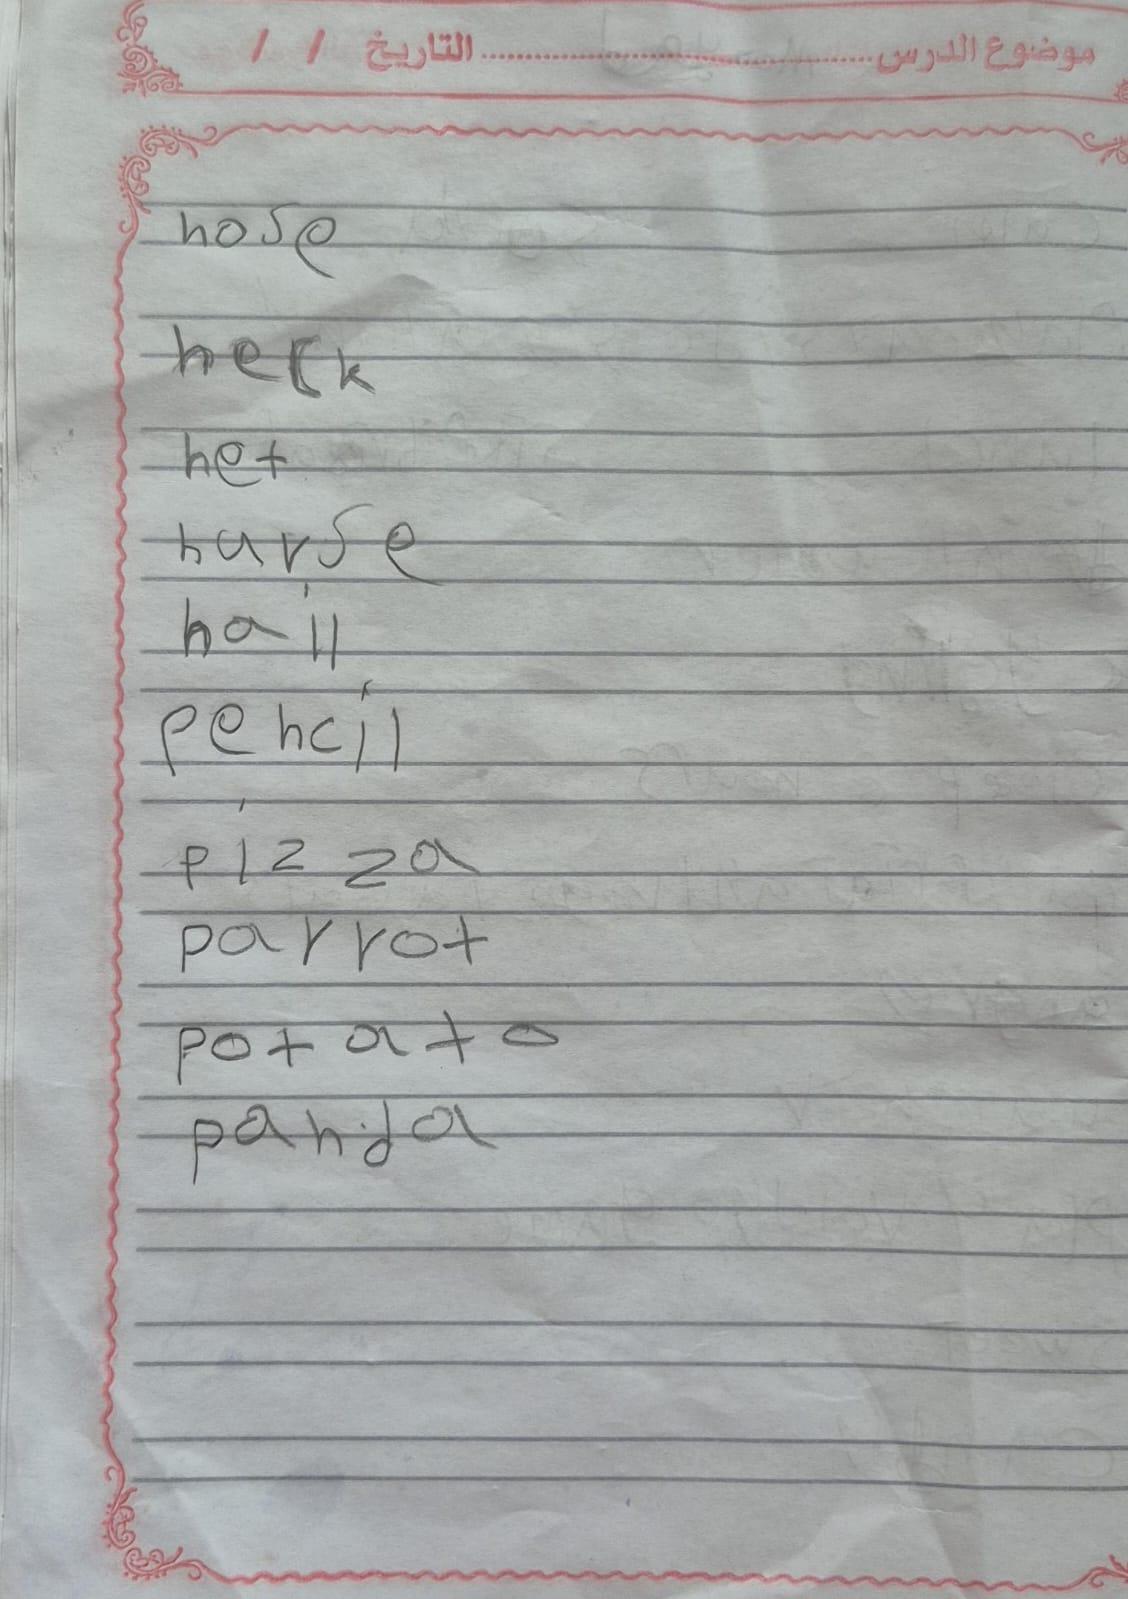 موضوع الدرس ........................ التاريخ / /
nose
neck
net
nurse
nail
pencil
pizza
parrot
potato
panda